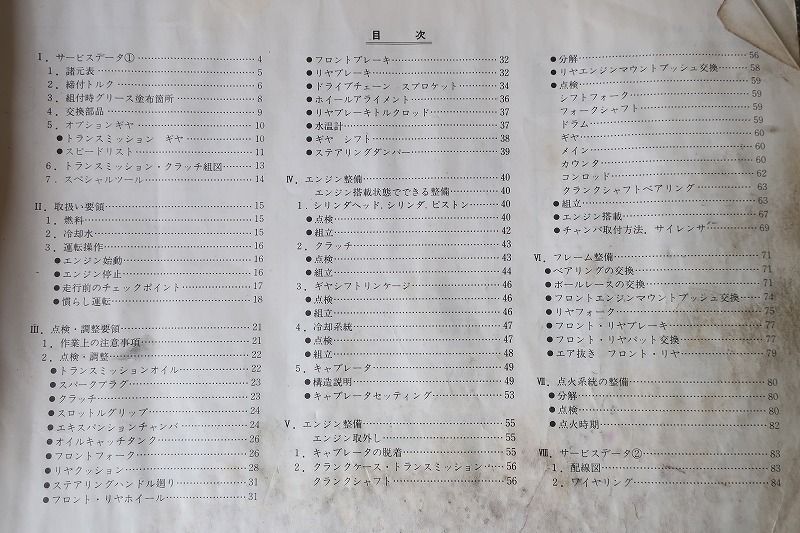 目 次
Ⅰ. サービスデータ① 4
1. 諸元表 5
2. 締付トルク 6
3. 組付時グリース塗布箇所 8
4. 交換部品 9
5. オプションギヤ 10
●トランスミッション ギヤ 10
●スピードリスト 11
6. トランスミッション・クラッチ組図 13
7. スペシャルツール 14
Ⅱ. 取扱い要領 15
1. 燃料 15
2. 冷却水 15
3. 運転操作 16
●エンジン始動 16
●エンジン停止 16
●走行前のチェックポイント 17
●慣らし運転 18
Ⅲ. 点検・調整要領 21
1. 作業上の注意事項 21
2. 点検・調整 22
●トランスミッションオイル 22
●スパークプラグ 23
●クラッチ 23
●スロットルグリップ 24
●エキスパンションチャンバ 24
●オイルキャッチタンク 26
●フロントフォーク 26
●リヤクッション 28
●ステアリングハンドル廻り 31
●フロント・リヤホイール 31
●フロントブレーキ 32
●リヤブレーキ 32
●ドライブチェーン スプロケット 34
●ホイールアライメント 36
●リヤブレーキトルクロッド 37
●水温計 37
●ギヤ シフト 38
●ステアリングダンパー 39
Ⅳ. エンジン整備 40
エンジン搭載状態でできる整備 40
1. シリンダヘッド, シリンダ, ピストン 40
●点検 40
●組立 42
2. クラッチ 43
●点検 43
●組立 44
3. ギヤシフトリンケージ 46
●点検 46
●組立 46
4. 冷却系統 47
●点検 47
●組立 48
5. キャブレータ 49
●構造説明 49
●キャブレータセッティング 53
Ⅴ. エンジン整備 55
エンジン取外し 55
1. キャブレータの脱着 55
2. クランクケース・トランスミッション 56
クランクシャフト 56
●分解 56
●リヤエンジンマウントブッシュ交換 58
●点検 59
シフトフォーク 59
フォークシャフト 59
ドラム 59
ギヤ 60
メイン 60
カウンタ 60
コンロッド 62
クランクシャフトベアリング 63
●組立 63
●エンジン搭載 67
●チャンバ取付方法, サイレンサ 69
Ⅵ. フレーム整備 71
●ベアリングの交換 71
●ボールレースの交換 71
●フロントエンジンマウントブッシュ交換 74
●リヤフォーク 75
●フロント・リヤブレーキ 77
●フロント・リヤパット交換 77
●エア抜き フロント・リヤ 79
Ⅶ. 点火系統の整備 80
●分解 80
●点検 80
●点火時期 82
Ⅷ. サービスデータ② 83
1. 配線図 83
2. ワイヤリング 84